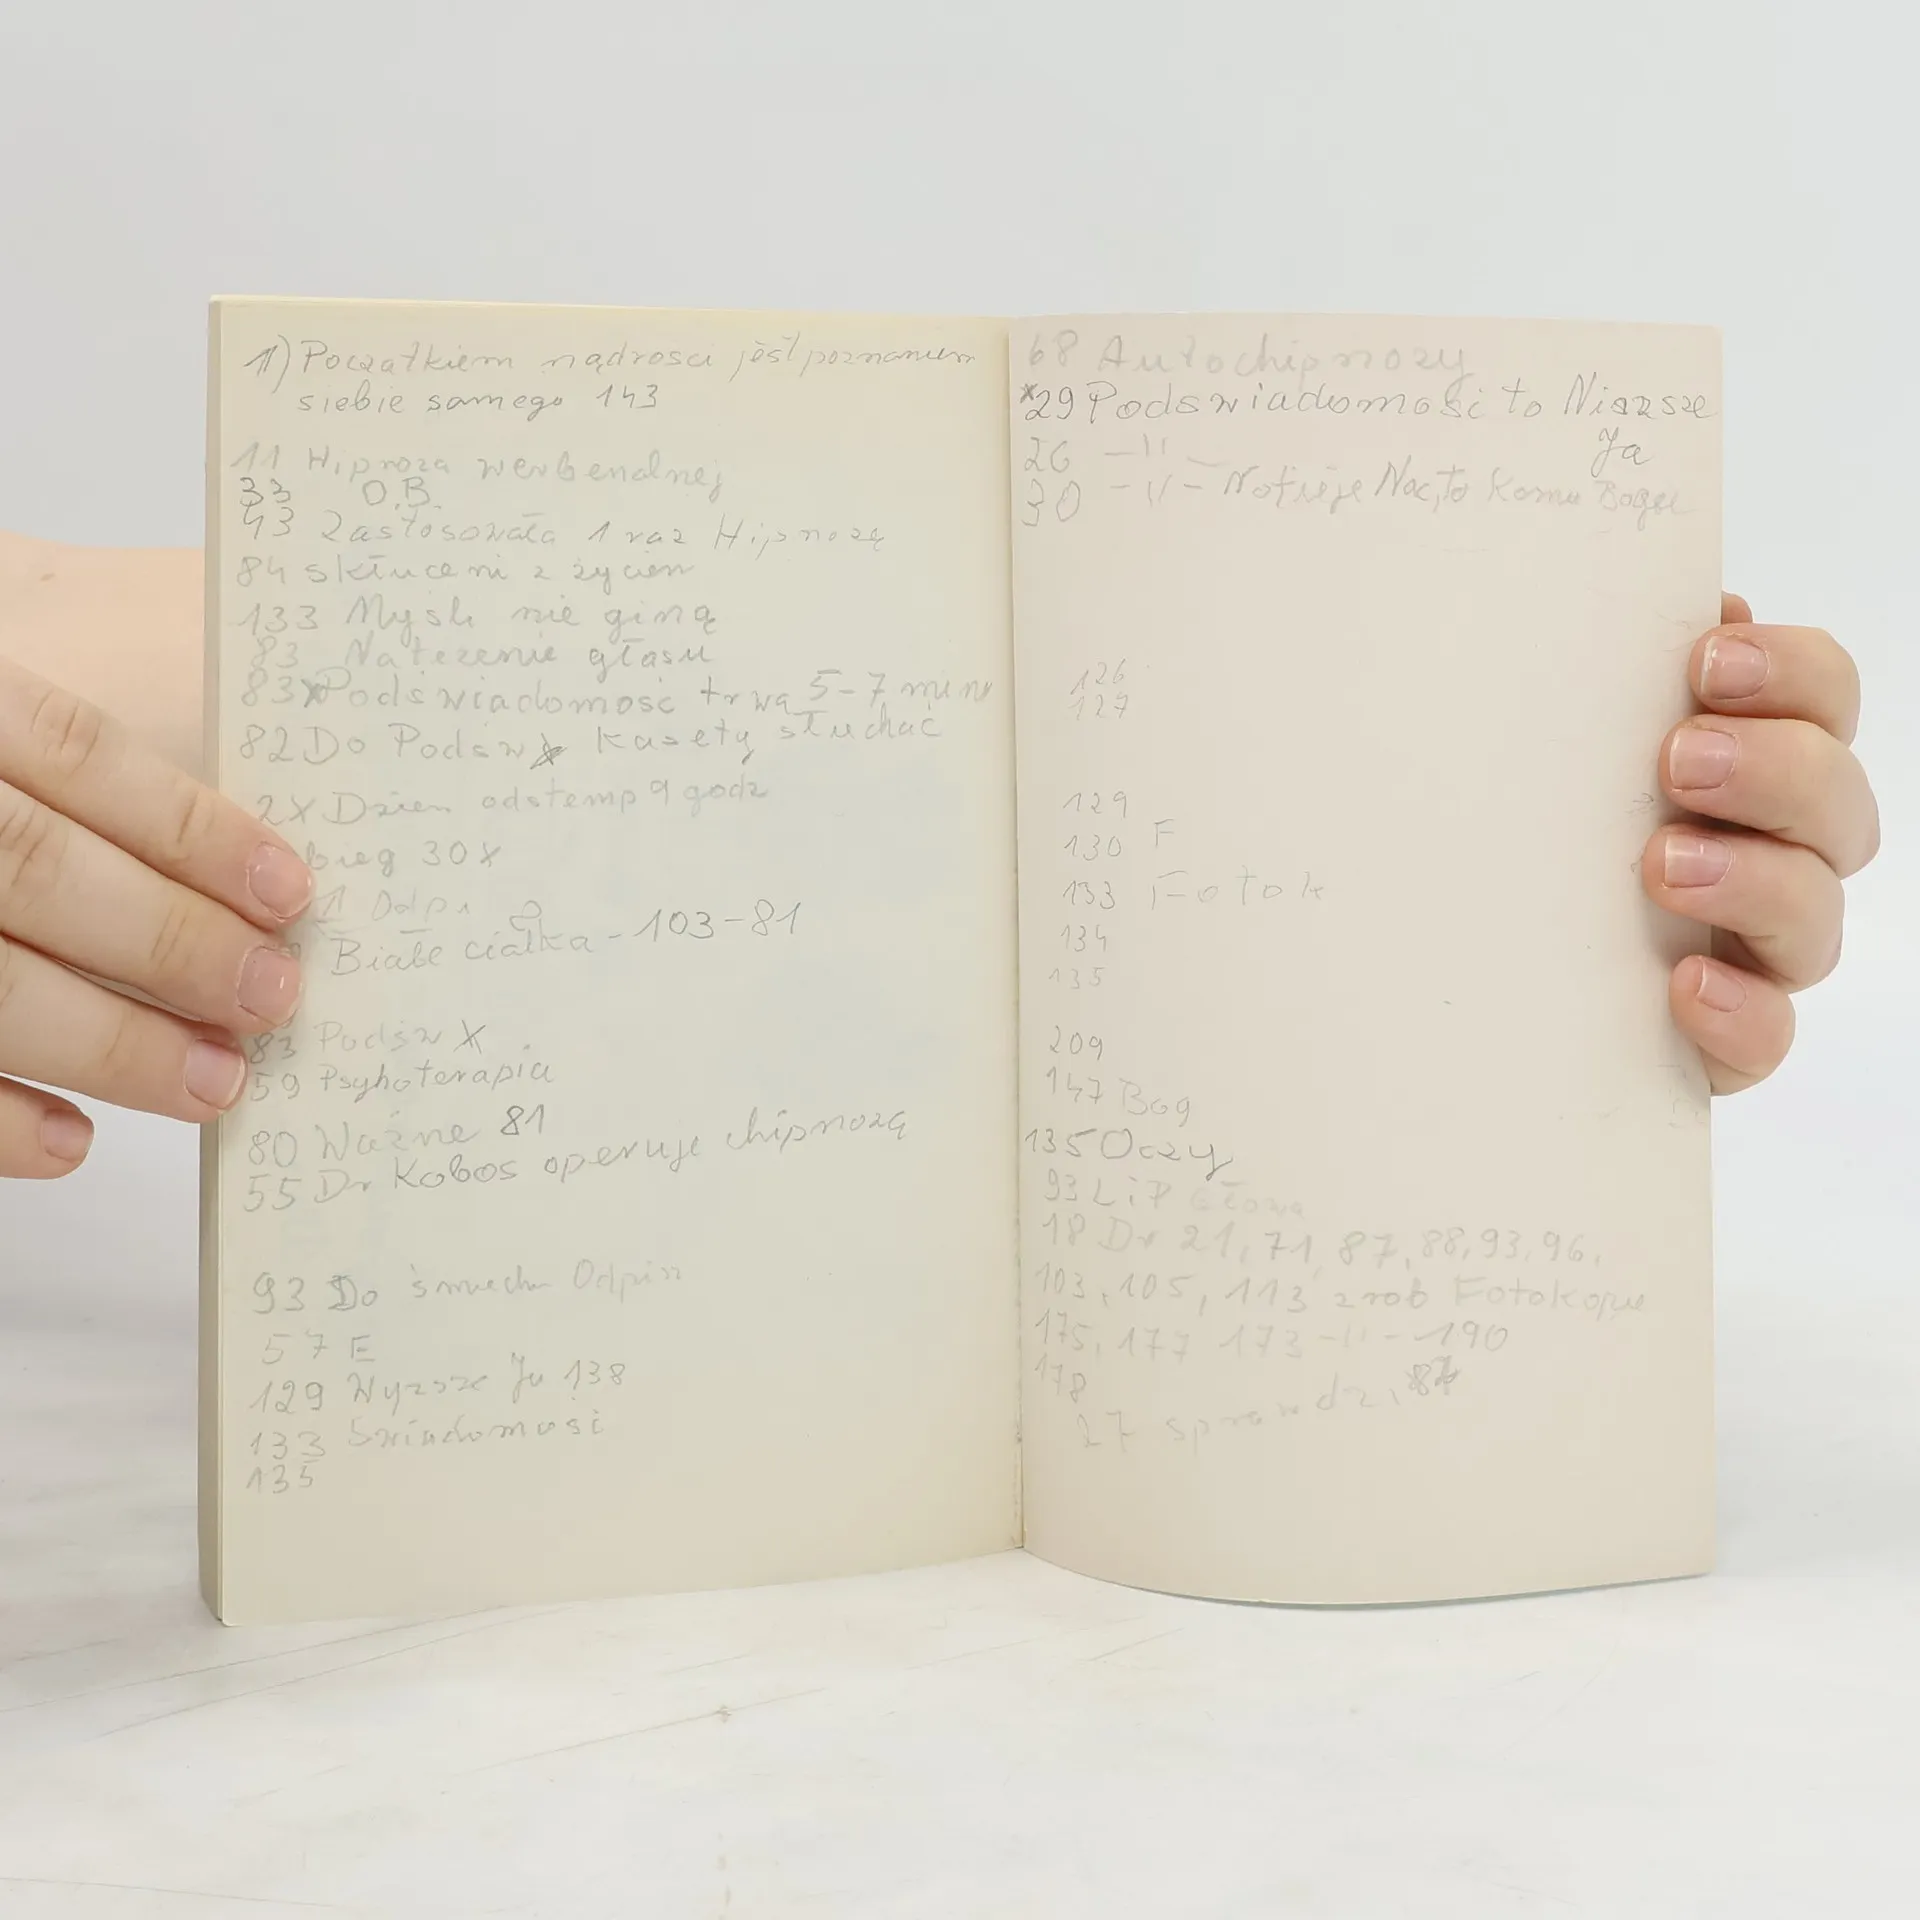 1) Początkiem mądrości jest poznaniem
siebie samego 143
11 Hipnoza werbenalnej
33 O.B.
43 Zastosowała 1 raz Hipnozę
84 skłuceni z życiem
133 Myśli nie giną
83 Natezenie głosu
83x Podświadomość trwa 5-7 min
82 Do Podśw x kasety słuchać
2x Dzien odstemp 9 godz
bieg 30x
1 Odpr
Białe ciałka - 103-81
83 Podśw X
59 Psyhoterapia
80 Ważne 81
55 Dr Kobos operuje chipnozą
93 Do śmiechu
57 E
129 Wyzsze Ja 138
133 Swiadomość
135
68 Autochipnozy
x29 Podswiadomość to Niszsze
Ja
26 -11-
30 -11- Noc, to komu Bogu
126
127
129
130 F
133 Fotok
134
135
209
147 Bog
135 Oczy
93 LiP Głowa
18 Dr 21, 71, 87, 88, 93, 96,
103, 105, 113 zrob Fotokopie
175, 177 173 -11- 190
178
27 sprawdz,